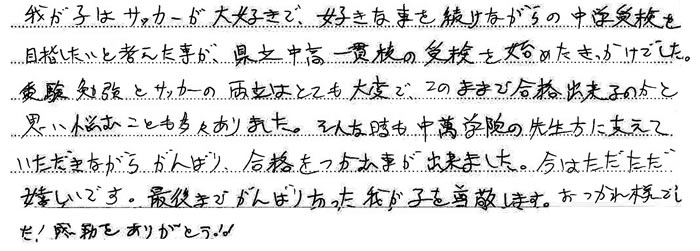 我が子はサッカーが大好きで、好きな事を続けながらの中学受検を
目指したいと考えた事が、県立中高一貫校の受検を始めたきっかけでした。
受験勉強とサッカーの両立はとても大変で、このままで合格出来るのかと
思い悩むことも多々ありました。そんな時も中萬学院の先生方に支えて
いただきながらがんばり、合格をつかむ事が出来ました。今はただただ
嬉しいです。最後までがんばりきった我が子を尊敬します。おつかれ様でし
た!感動をありがとう!!